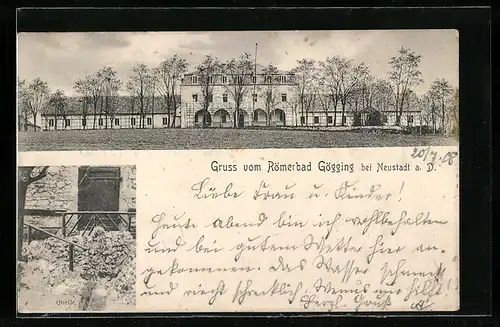 20/7. 08
Gruss vom Römerbad Gögging bei Neustadt a. D.
Liebe Frau u. Kinder!
Heute abend bin ich wohlbehalten
und bei gutem Wetter hier an-
gekommen. Das Wasser schmeckt
und riecht schrecklich. Wenns nur hilft!
Herzl. Gruß
Quelle